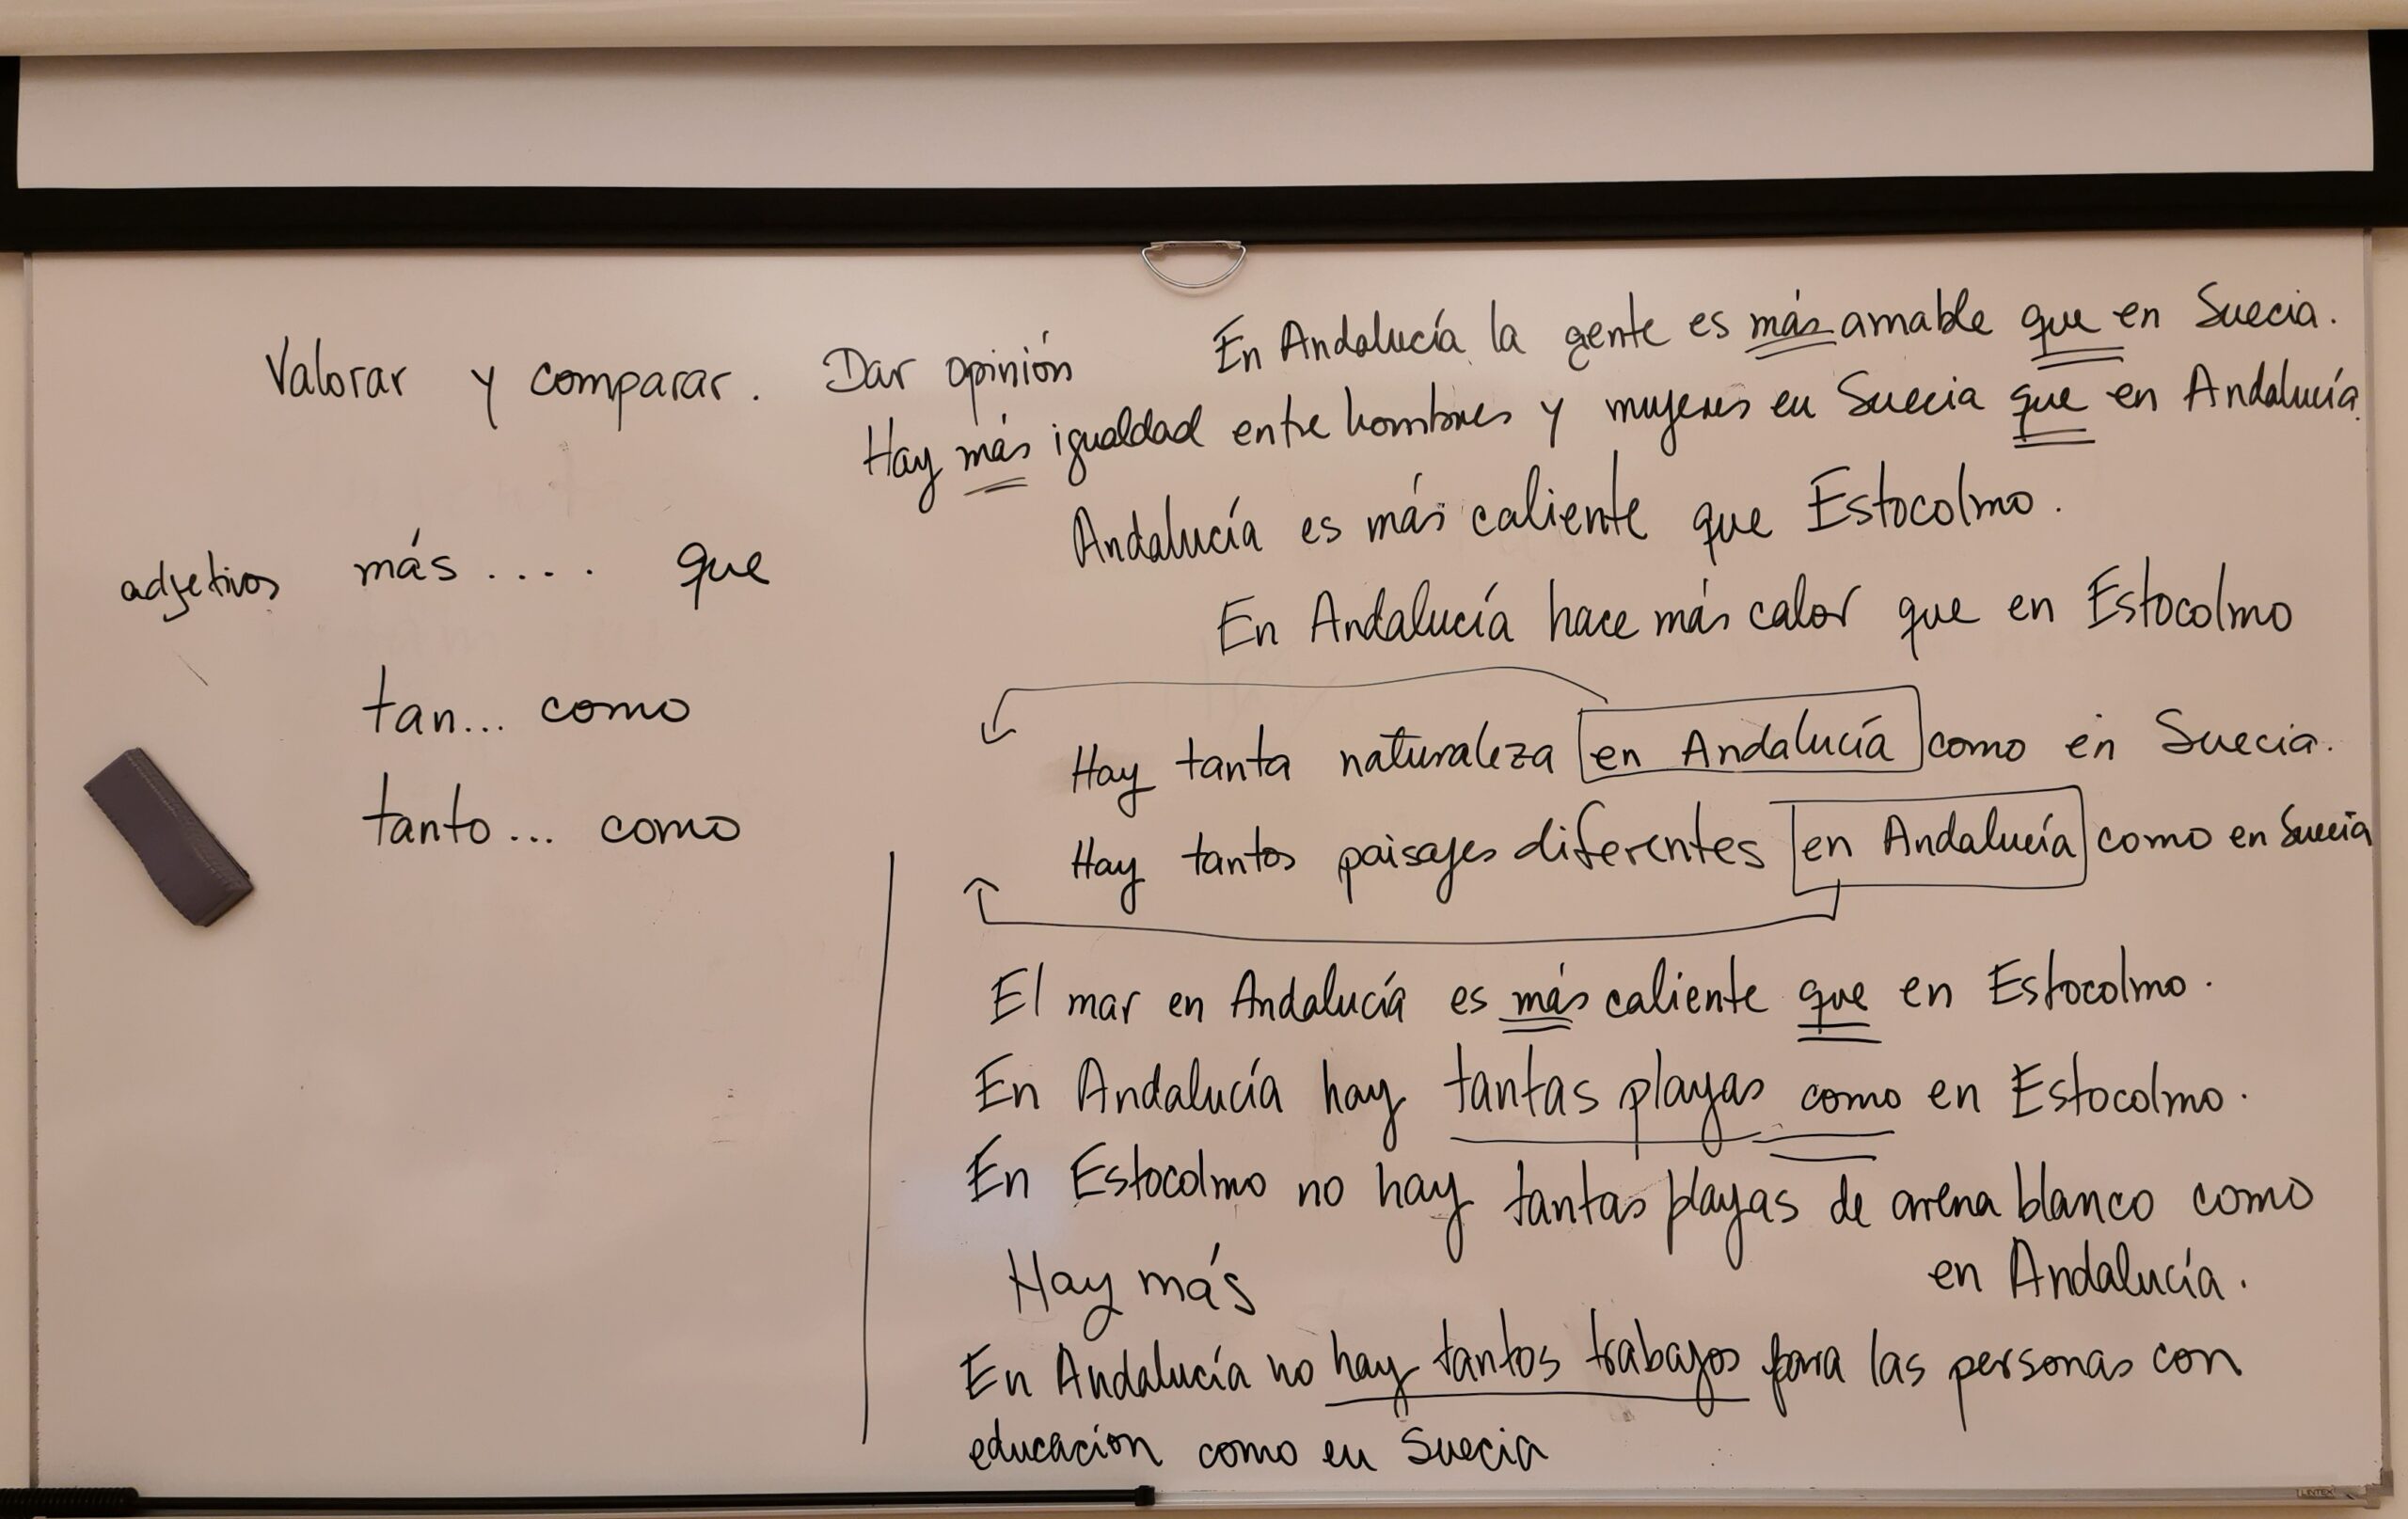 Valorar y comparar. Dar opinión
En Andalucía la gente es más amable que en Suecia.
Hay más igualdad entre hombres y mujeres en Suecia que en Andalucía.
Andalucía es más caliente que Estocolmo.
En Andalucía hace más calor que en Estocolmo
adjetivos más .... que
tan... como
tanto... como
Hay tanta naturaleza en Andalucía como en Suecia.
Hay tantos paisajes diferentes en Andalucía como en Suecia
El mar en Andalucía es más caliente que en Estocolmo.
En Andalucía hay tantas playas como en Estocolmo.
En Estocolmo no hay tantas playas de arena blanco como
en Andalucía.
Hay más
En Andalucía no hay tantos trabajos para las personas con
educacion como en Suecia
LINTEX